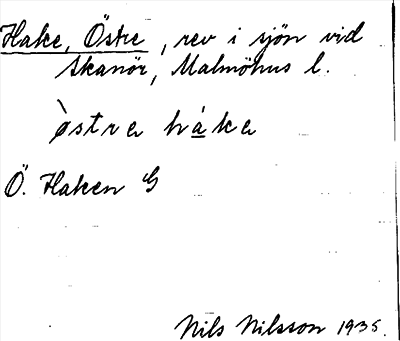 Hake, Östre, rev i sjön vid
Skanör, Malmöhus l.
òstra hake
Ö. Haken G
Nils Nilsson 1935.